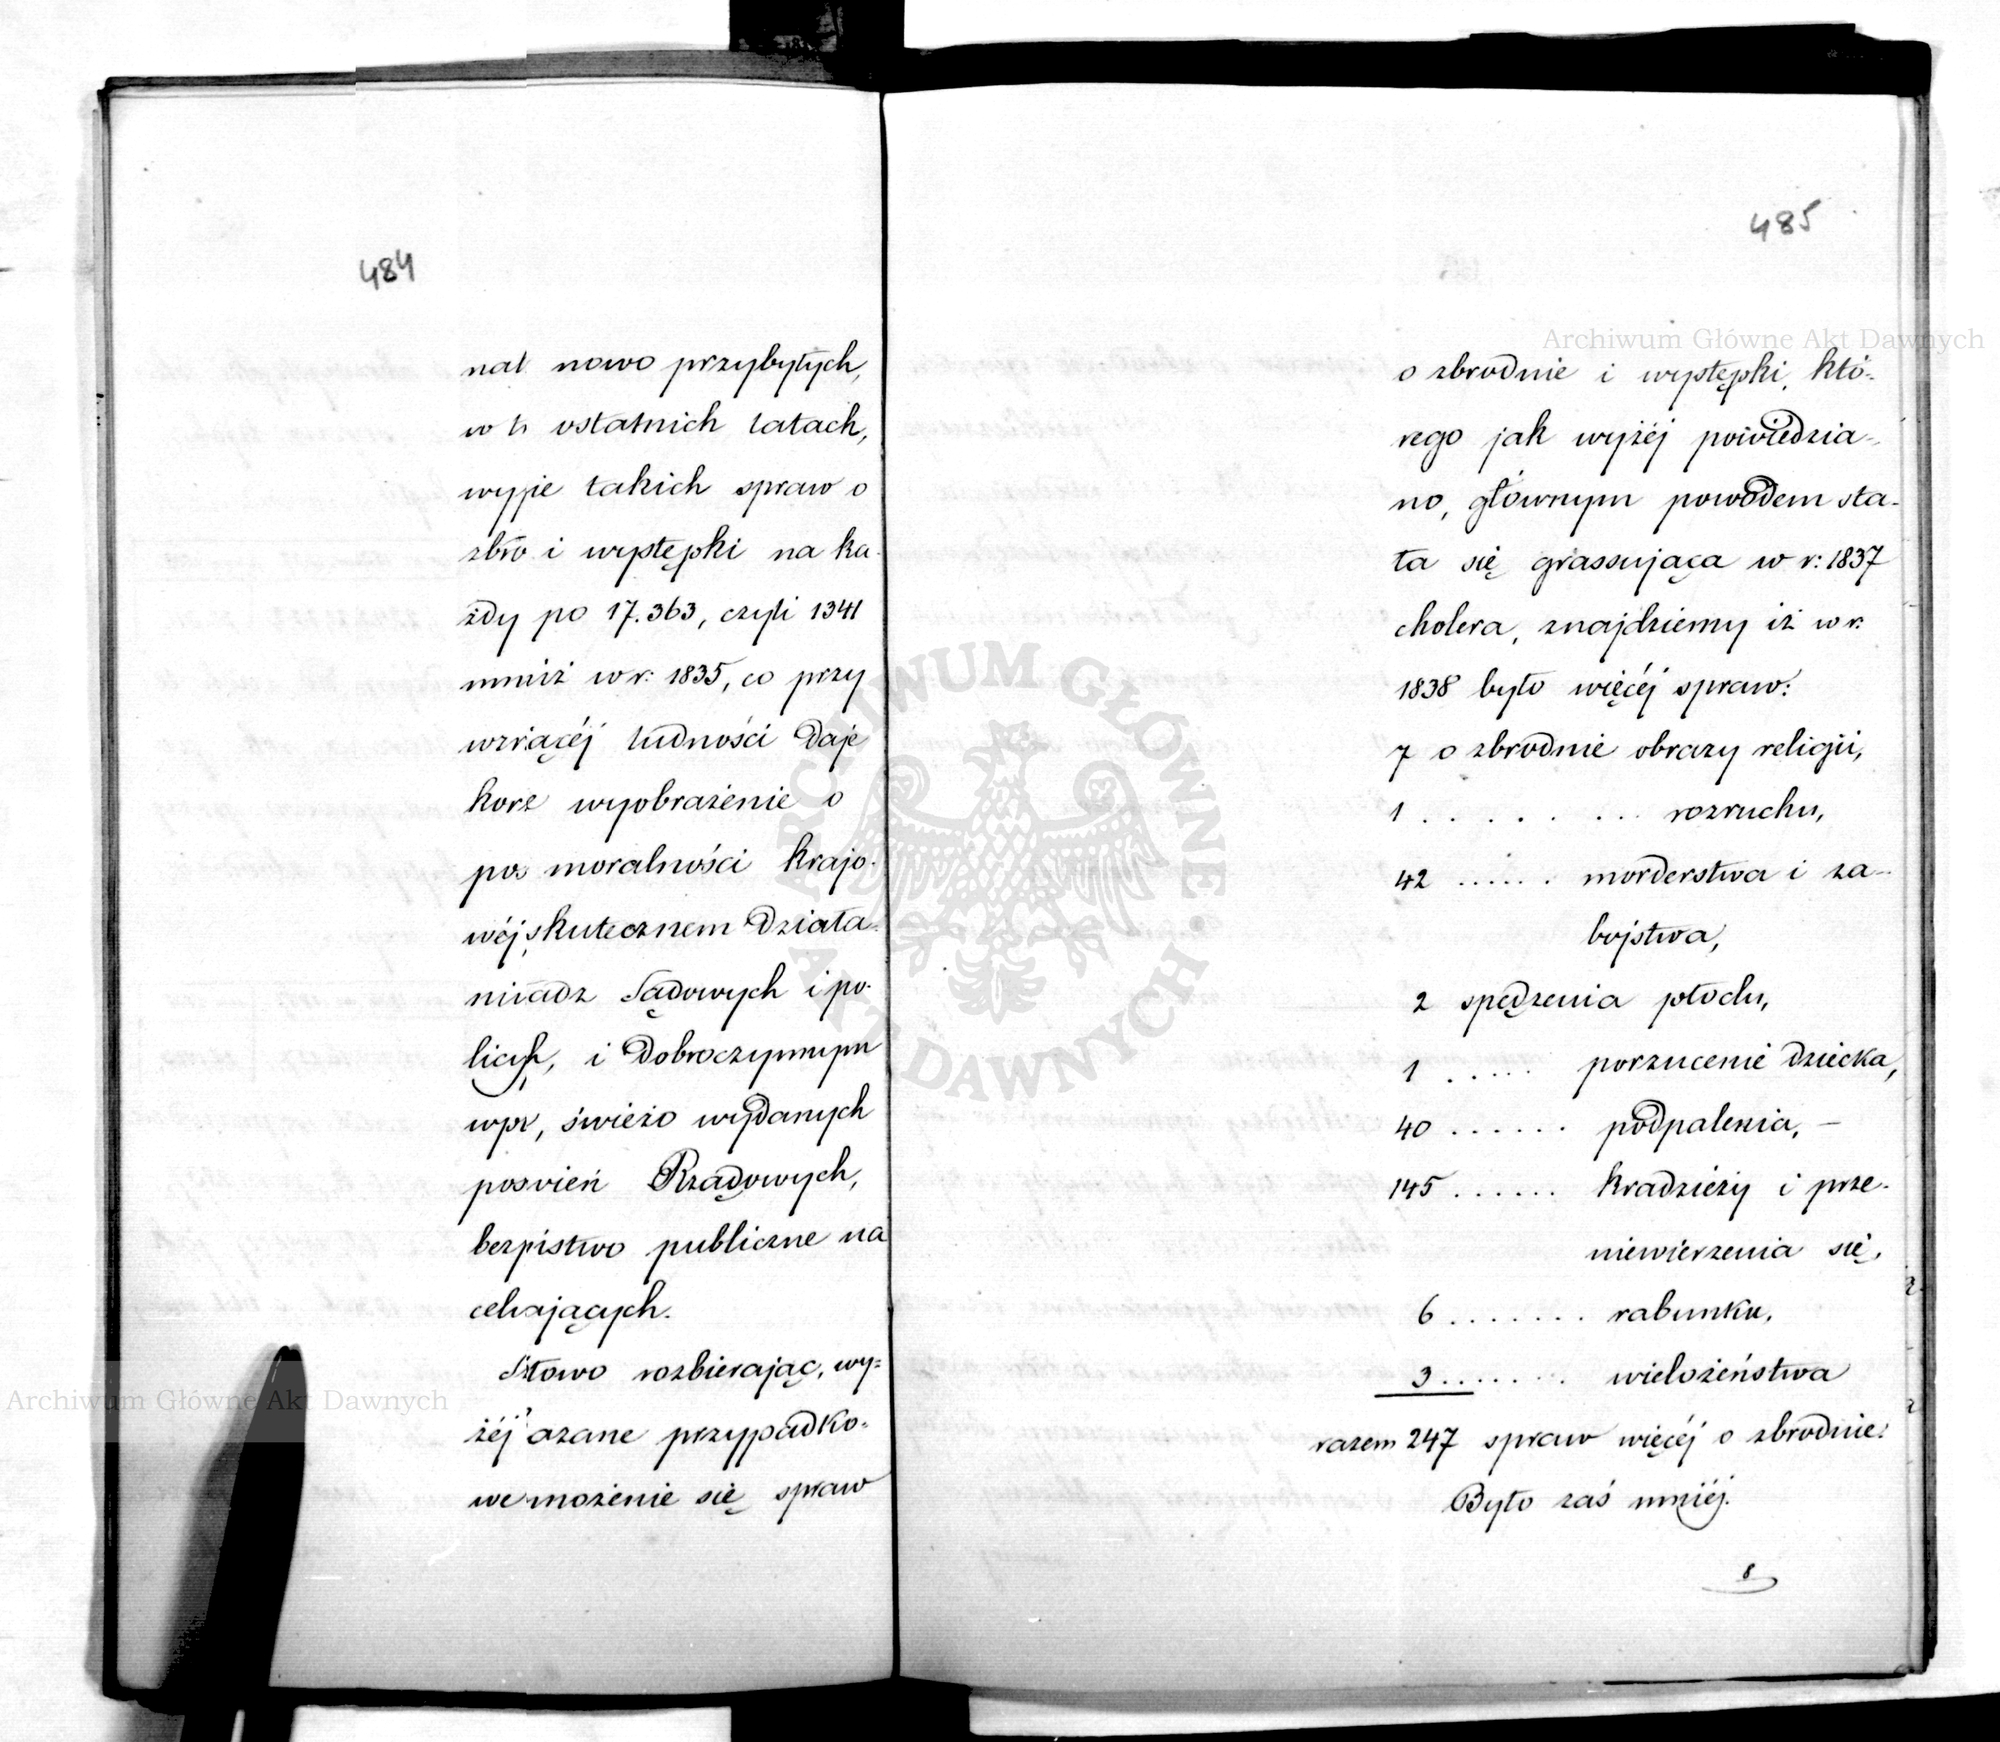 484
nal nowo przybyłych,
w t. ostatnich latach,
wyje takich spraw o
zbro i występki na ka-
żdy po 17.363, czyli 1341
mniż w r: 1835, co przy
wzrącéj ludności daje
korz wyobrażenie o
pos moralności krajo-
wéj, skutecznem działa-
niadz Sądowych i po-
licyh, i dobroczynnym
wpł, świeżo wydanych
posvień Rządowych,
bezpistwo publiczne na
celujących.
rozbierając, wy=
żéj azane przypadko-
we mnożenie się spraw
485
o zbrodnie i występki, któ-
rego jak wyżéj powiedzia-
no, głównym powodem sta-
ła się grassująca w r: 1837
cholera, znajdziemy iż w r:
1838 było więcéj spraw:
7 o zbrodnie obrazy religii,
1 . . . . . . . . rozruchu,
42 . . . . . . morderstwa i za-
bojstwa,
2 spędzenia płodu,
1 . . . . . porzucenie dziecka,
40 . . . . . . podpalenia, —
145 . . . . . . kradzieży i prze-
niewierzenia się,
6 . . . . . . . rabunku,
3 . . . . . . . wielożeństwa
razem 247 spraw więcéj o zbrodnie:
Było zaś mniéj.
8
Archiwum Główne Akt Dawnych
ARCHIWUM GŁÓWNE AKT DAWNYCH
Archiwum Główne Akt Dawnych